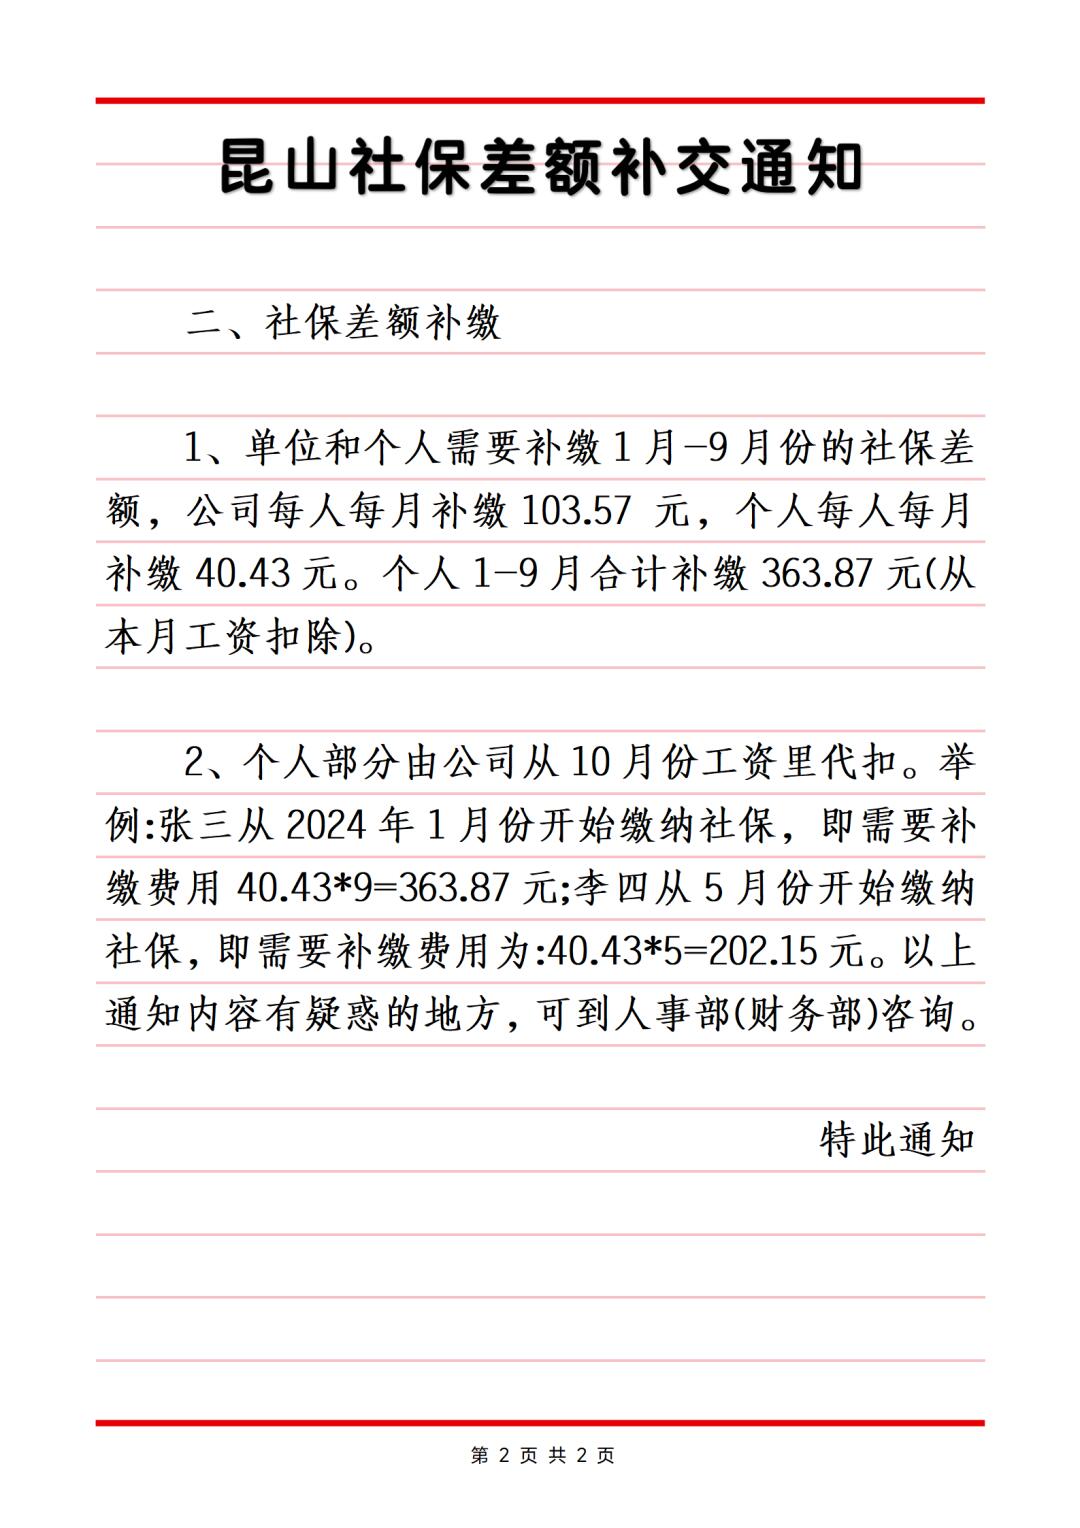 昆山社保差额补交通知
二、社保差额补缴
1、单位和个人需要补缴1月-9月份的社保差
额，公司每人每月补缴103.57 元，个人每人每月
补缴40.43元。个人1-9月合计补缴363.87元(从
本月工资扣除)。
2、个人部分由公司从10月份工资里代扣。举
例:张三从2024年1月份开始缴纳社保，即需要补
缴费用40.43*9=363.87元;李四从5月份开始缴纳
社保，即需要补缴费用为:40.43*5=202.15元。以上
通知内容有疑惑的地方，可到人事部(财务部)咨询。
特此通知
第 2 页 共 2 页